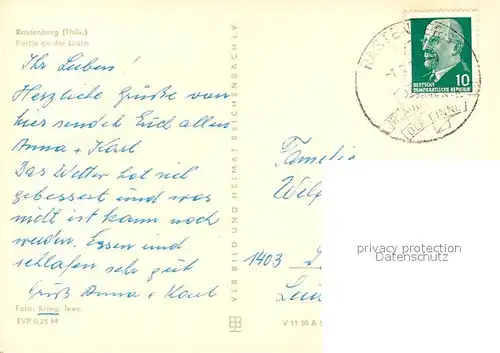 Rastenberg (Thür.)
Partie an der Lossa
Ihr Lieben!
Herzliche Grüße von
hier sendet Euch allen
Anna + Karl
Das Wetter hat sich
gebessert und was
nicht ist kann noch
werden. Essen und
schlafen sehr gut
Gruß Anna + Karl
Foto: Krieg, Jena
EVP 0,25 M
VEB BILD UND HEIMAT REICHENBACH i. V.
V 11 50 A
Familie
1403
10
DEUTSCHE
DEMOKRATISCHE REPUBLIK
DER FINNE
privacy protection
Watermark